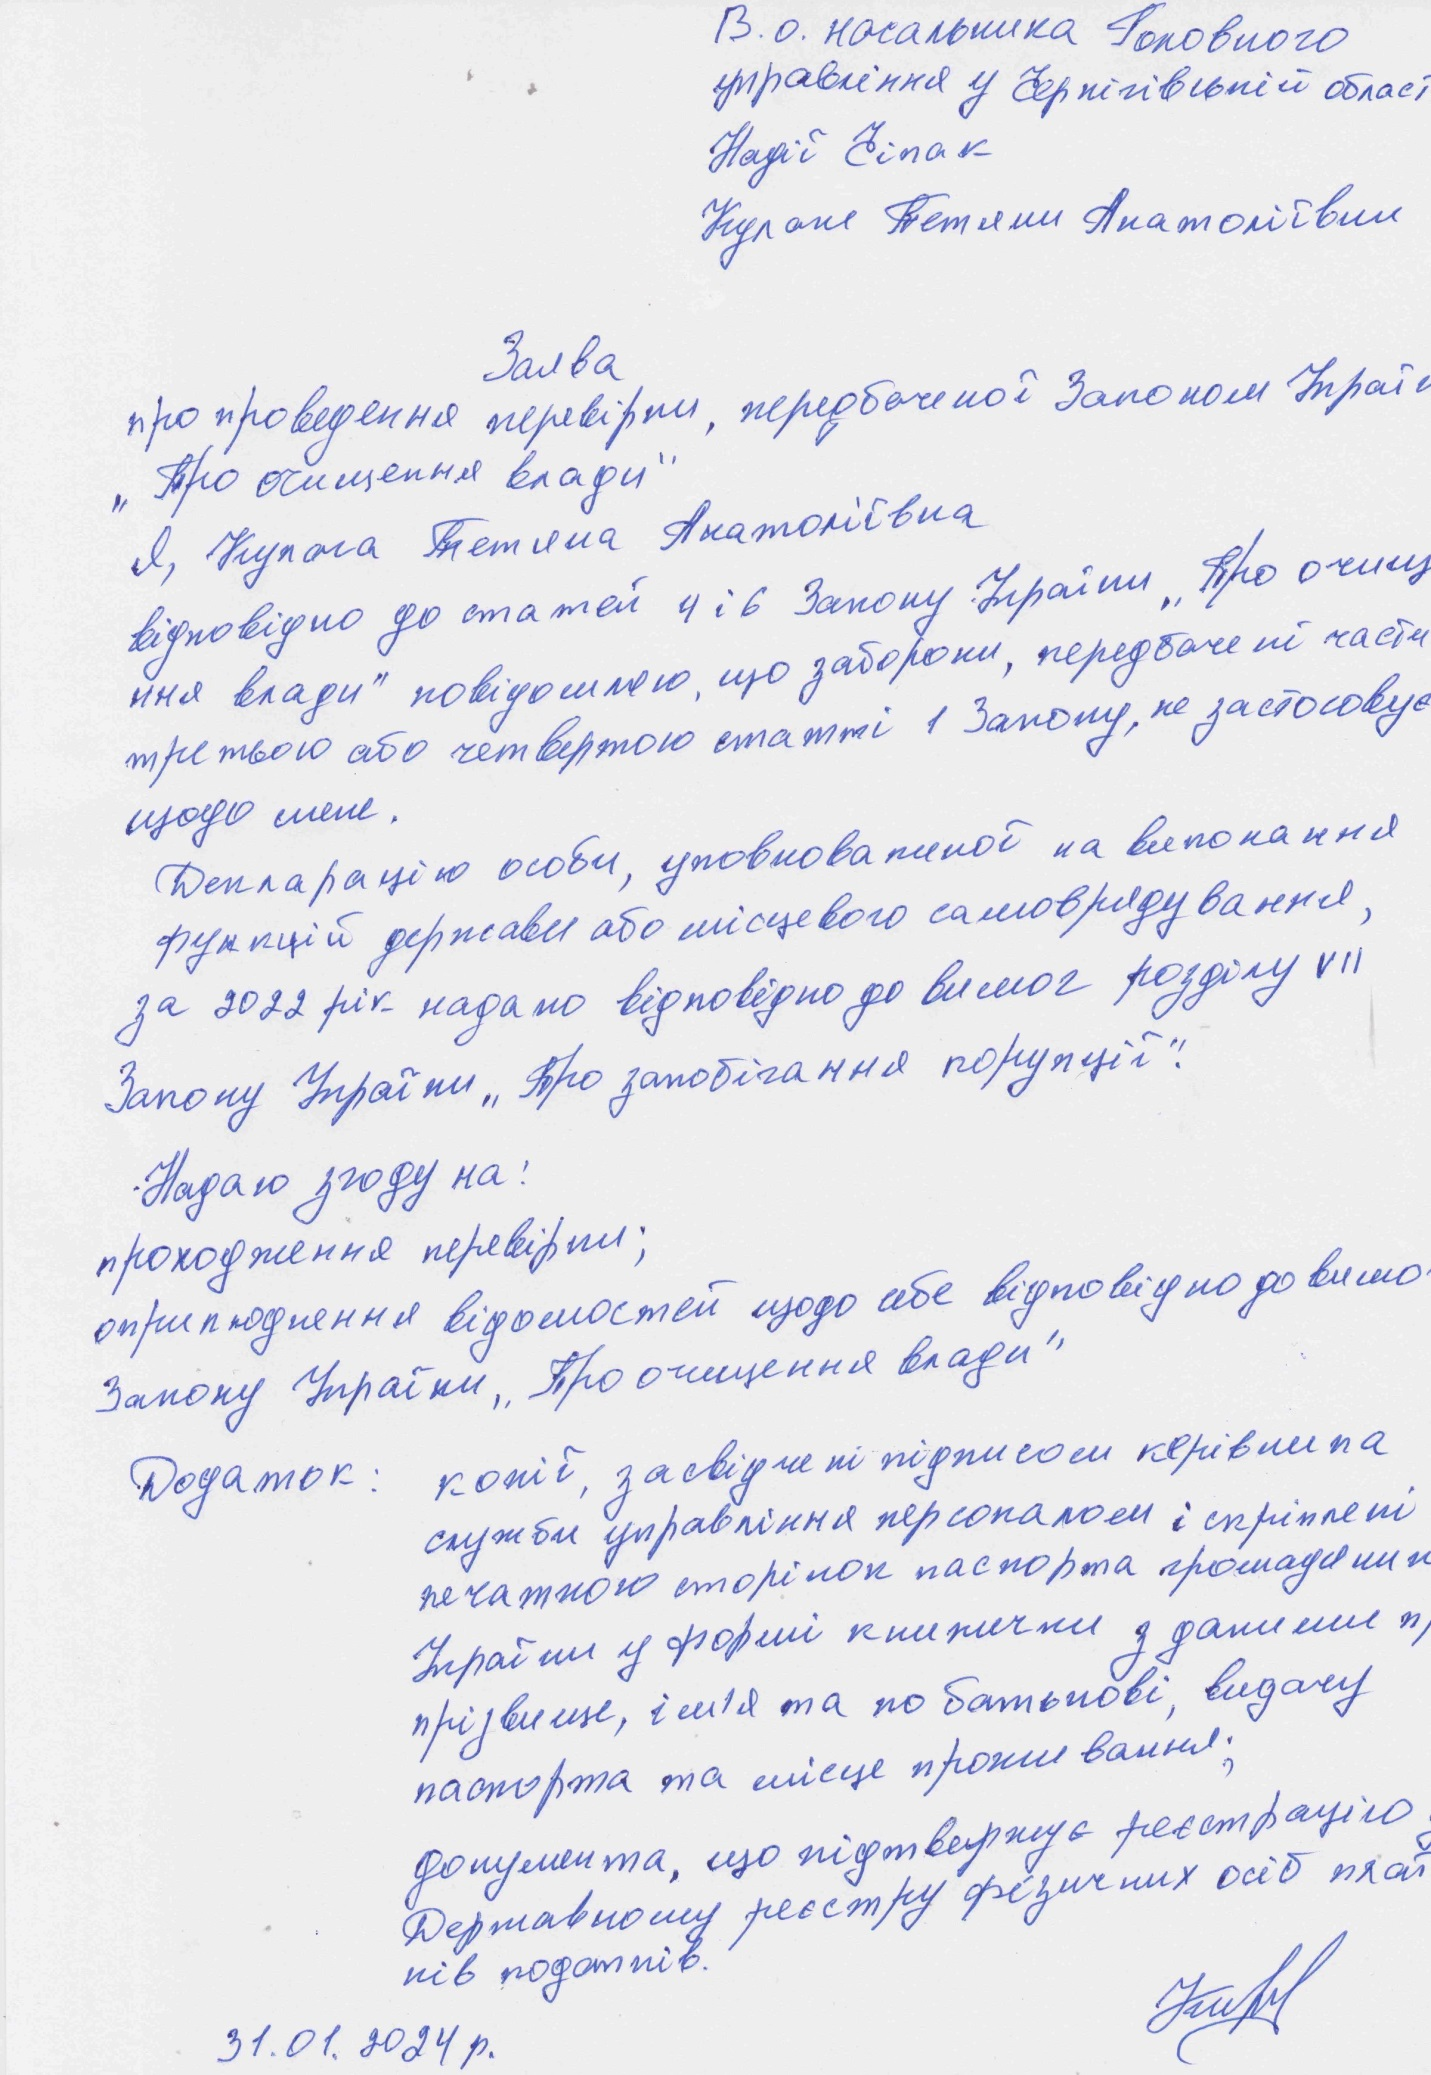 В.о. начальника Головного
управління у Чернігівській област
Надії Чіпак
Кулаги Тетяни Анатоліївни
Заява
про проведення перевірки, передбаченої Законом Украї
„Про очищення влади"
Я, Кулага Тетяна Анатоліївна
відповідно до статей 4 і 6 Закону України „Про очище
ння влади" повідомляю, що заборони, передбачені части
третьою або четвертою статті 1 Закону, не застосовує
щодо мене.
Декларацію особи, уповноваженої на виконання
функцій держави або місцевого самоврядування,
за 2022 рік надано відповідно до вимог розділу VII
Закону України „Про запобігання корупції".
Надаю згоду на:
проходження перевірки;
оприлюднення відомостей щодо себе відповідно до вимо
Закону України „Про очищення влади"
Додаток: копії, засвідчені підписом керівника
служби управління персоналом і скріплені
печаткою сторінок паспорта громадянин
України у формі книжечки з даними пр
прізвище, ім'я та по батькові, видачу
паспорта та місце проживання;
документа, що підтверджує реєстрацію у
Державному реєстру фізичних осіб плат
ків податків.
31.01.2024 р.